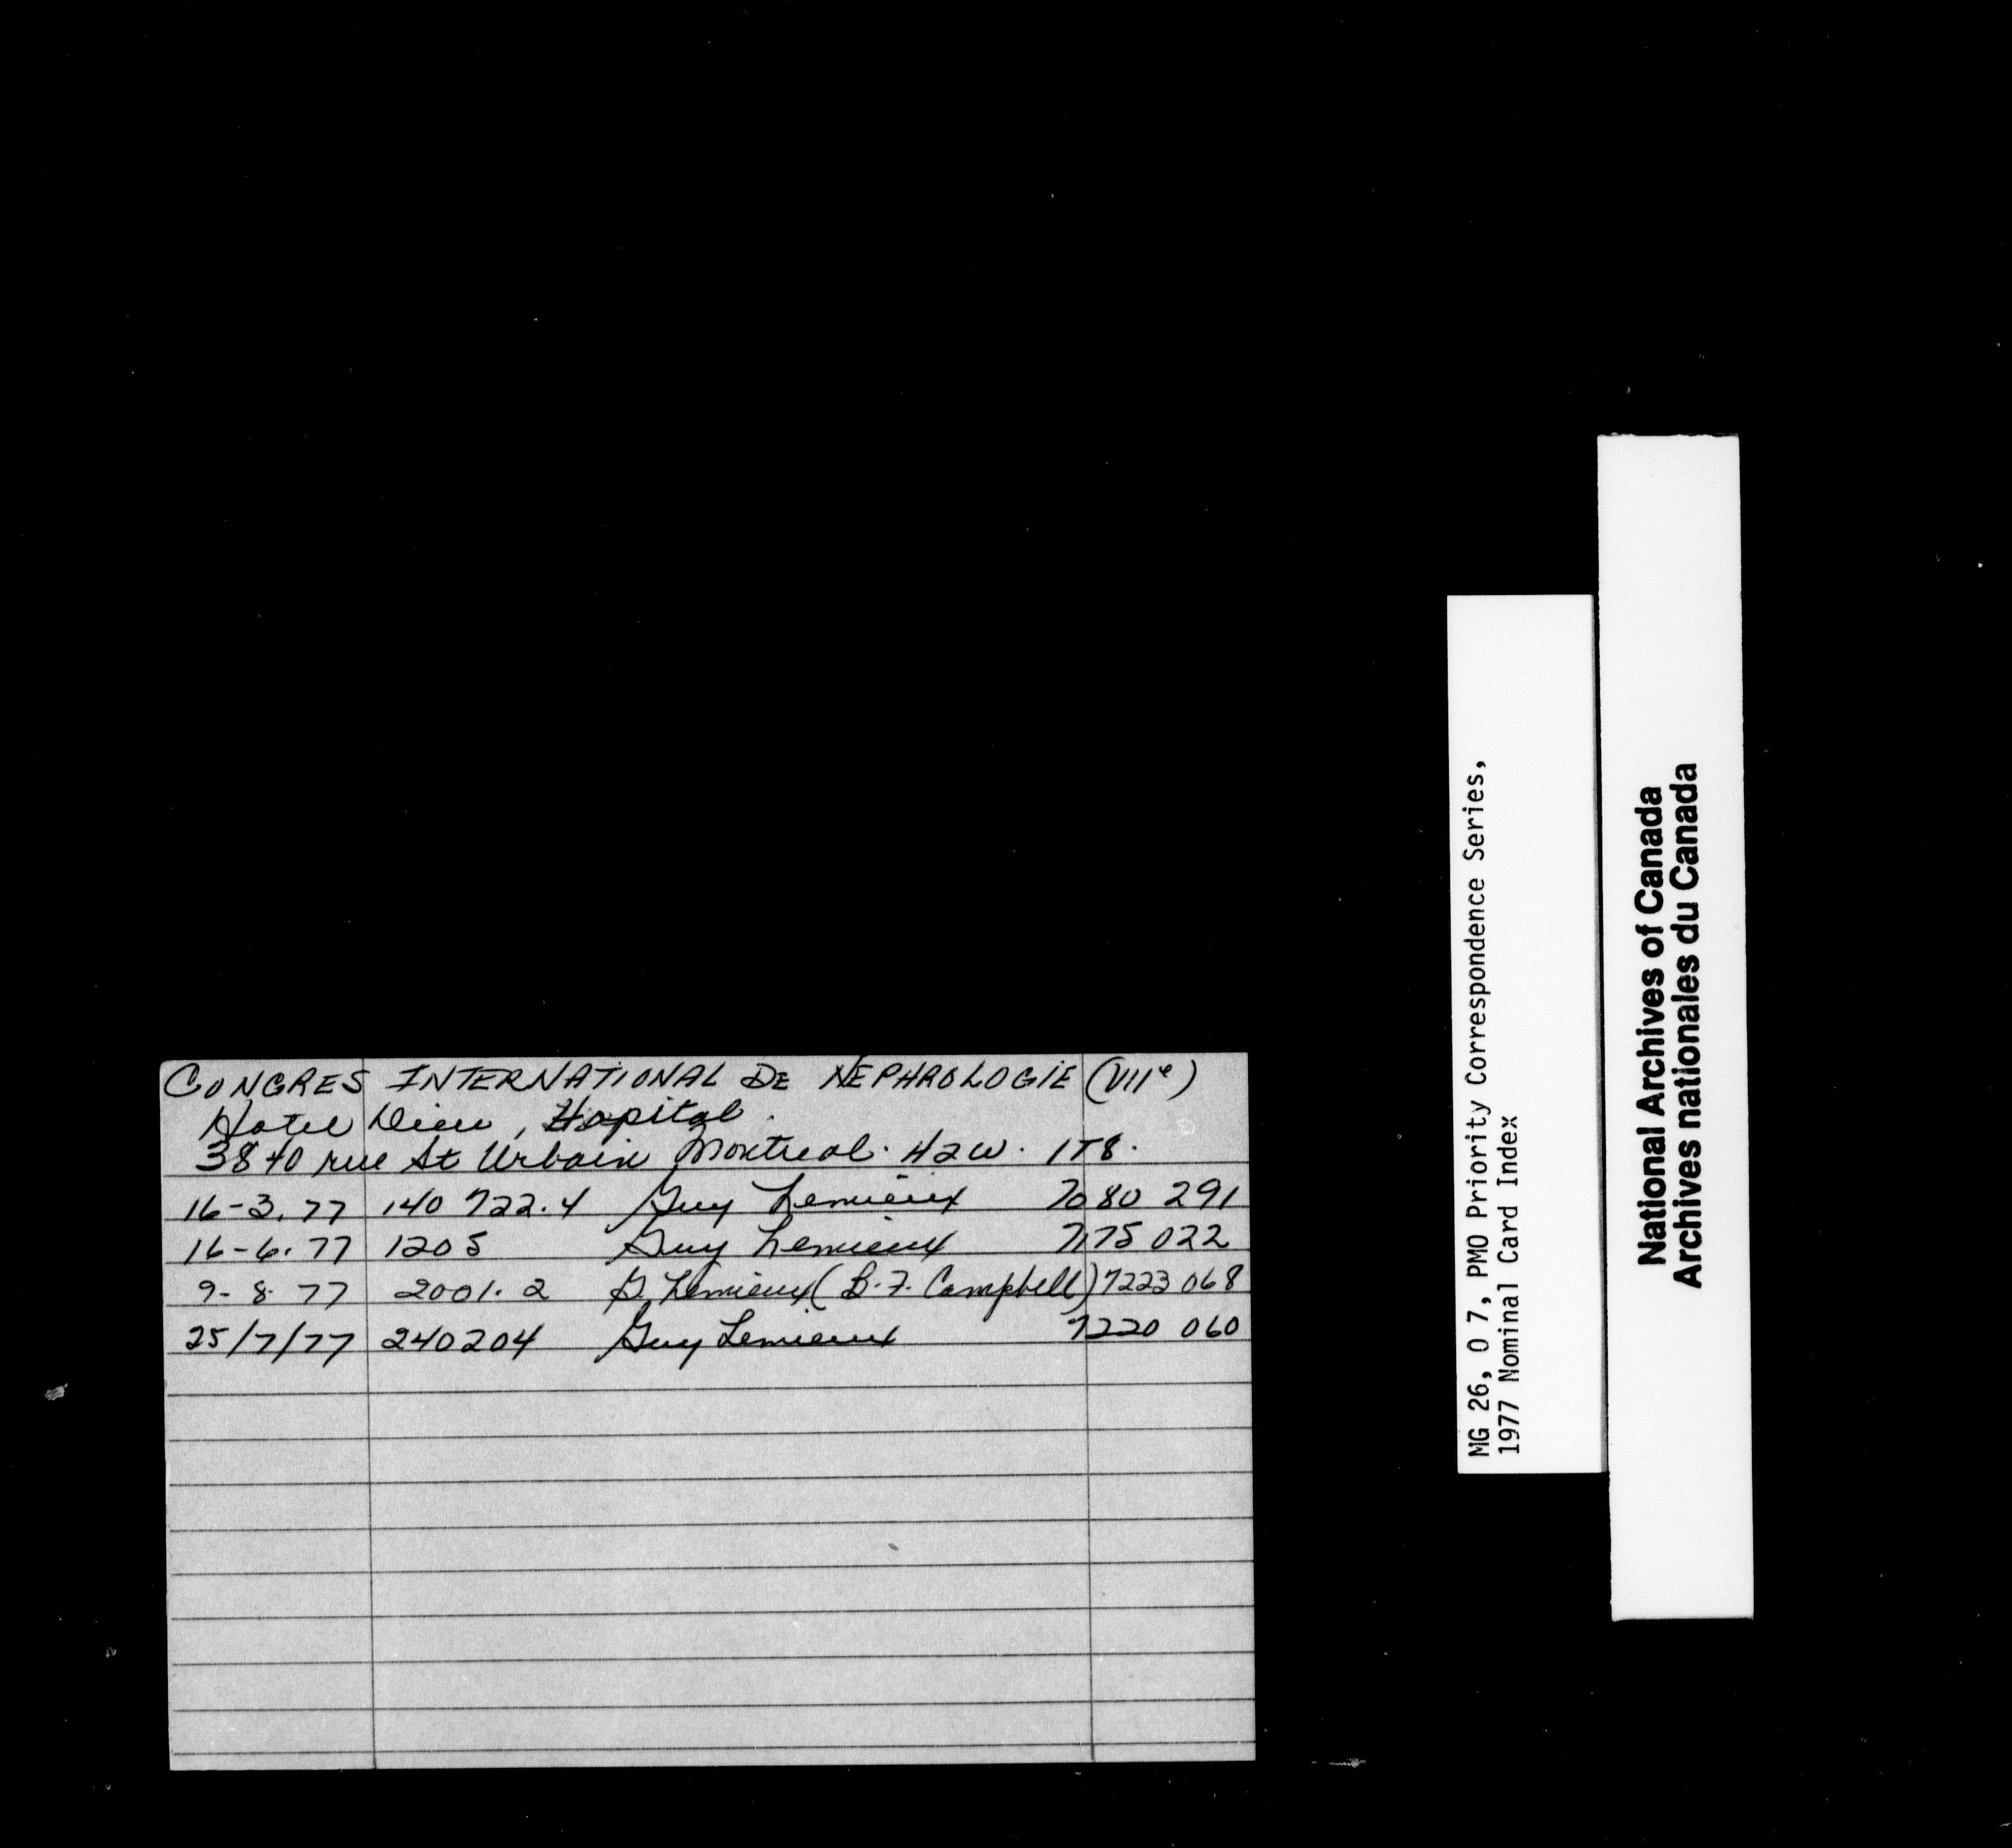 CONGRES INTERNATIONAL DE NEPHROLOGIE (VIIe)
Hotel Dieu, Hopital.
3840 rue St Urbain Montreal. H2W. 1T8.
16-3.77 140 722.4 Guy Lemieux 7080 291
16-6.77 1205 Guy Lemieux 7175 022
9-8-77 2001.2 G. Lemieux (B.F. Campbell) 7223 068
25/7/77 240204 Guy Lemieux 7220 060
MG 26, O 7, PMO Priority Correspondence Series,
1977 Nominal Card Index
National Archives of Canada
Archives nationales du Canada